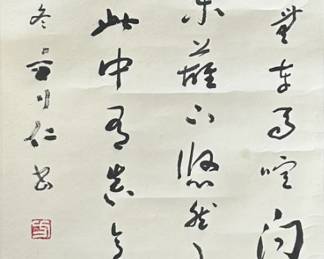 無車馬喧問
東籬下悠然
此中有真意
冬
仁書